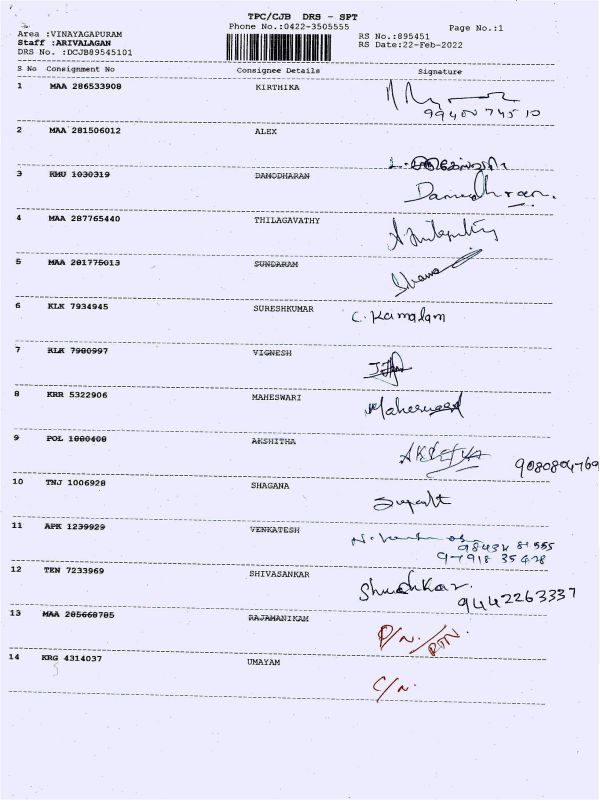 TPC/CJB DRS - SPT
Phone No.:0422-3505555
Page No.:1
Area :VINAYAGAPURAM
RS No.:895451
Staff :ARIVALAGAN
RS Date:22-Feb-2022
DRS No. :DCJB89545101
S No Consignment No Consignee Details Signature
1 MAA 286533908 KIRTHIKA
99400 74510
2 MAA 281506012 ALEX
3 KMU 1030319 DAMODHARAN
Damodharan.
4 MAA 287765440 THILAGAVATHY
5 MAA 281775013 SUNDARAM
6 KLK 7934945 SURESHKUMAR C. Kamalam
7 KLK 7980997 VIGNESH
8 KRR 5322906 MAHESWARI Maheswari
9 POL 1080408 AKSHITHA
9080804769
10 TNJ 1006928 SHAGANA
11 APK 1239929 VENKATESH
97918 35478
12 TEN 7233969 SHIVASANKAR
9442263337
13 MAA 285668785 RAJAMANIKAM D/N./RTN.
14 KRG 4314037 UMAYAM C/N.